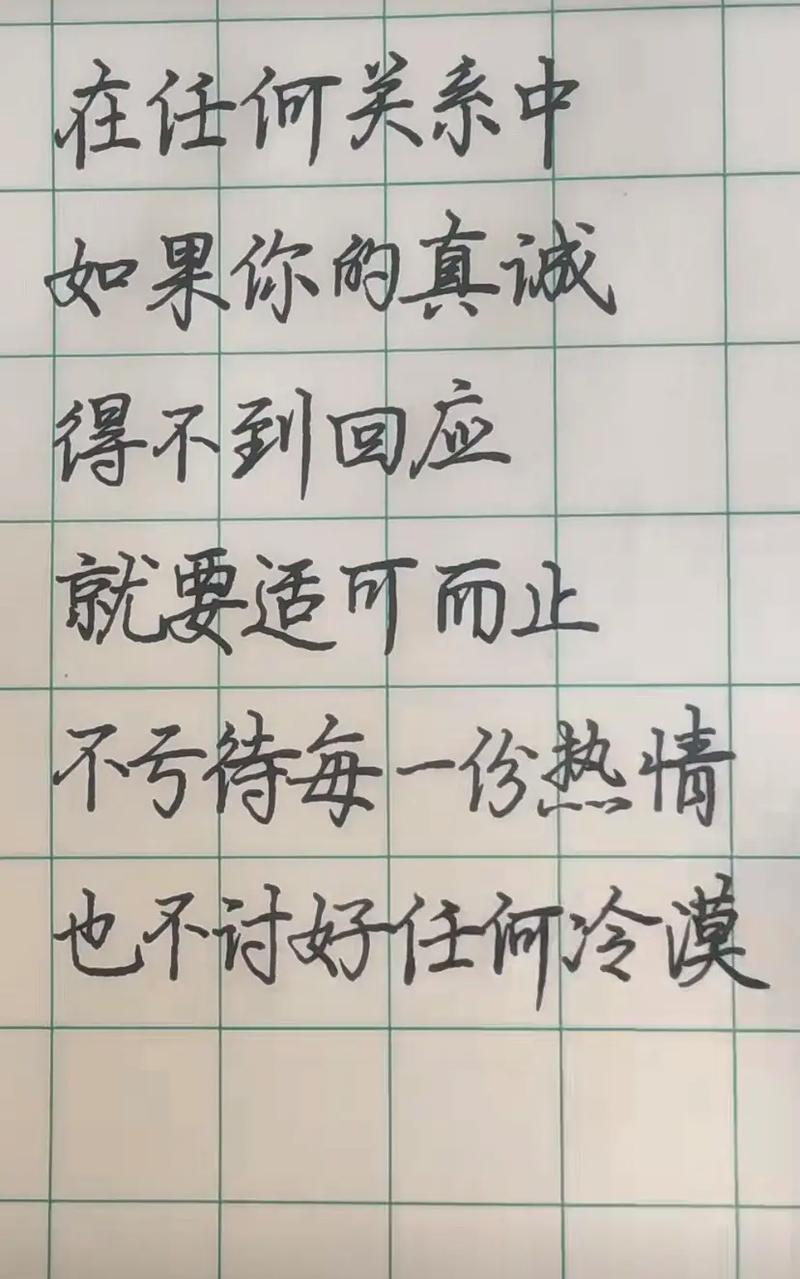 在任何关系中
如果你的真诚
得不到回应
就要适可而止
不亏待每一份热情
也不讨好任何冷漠